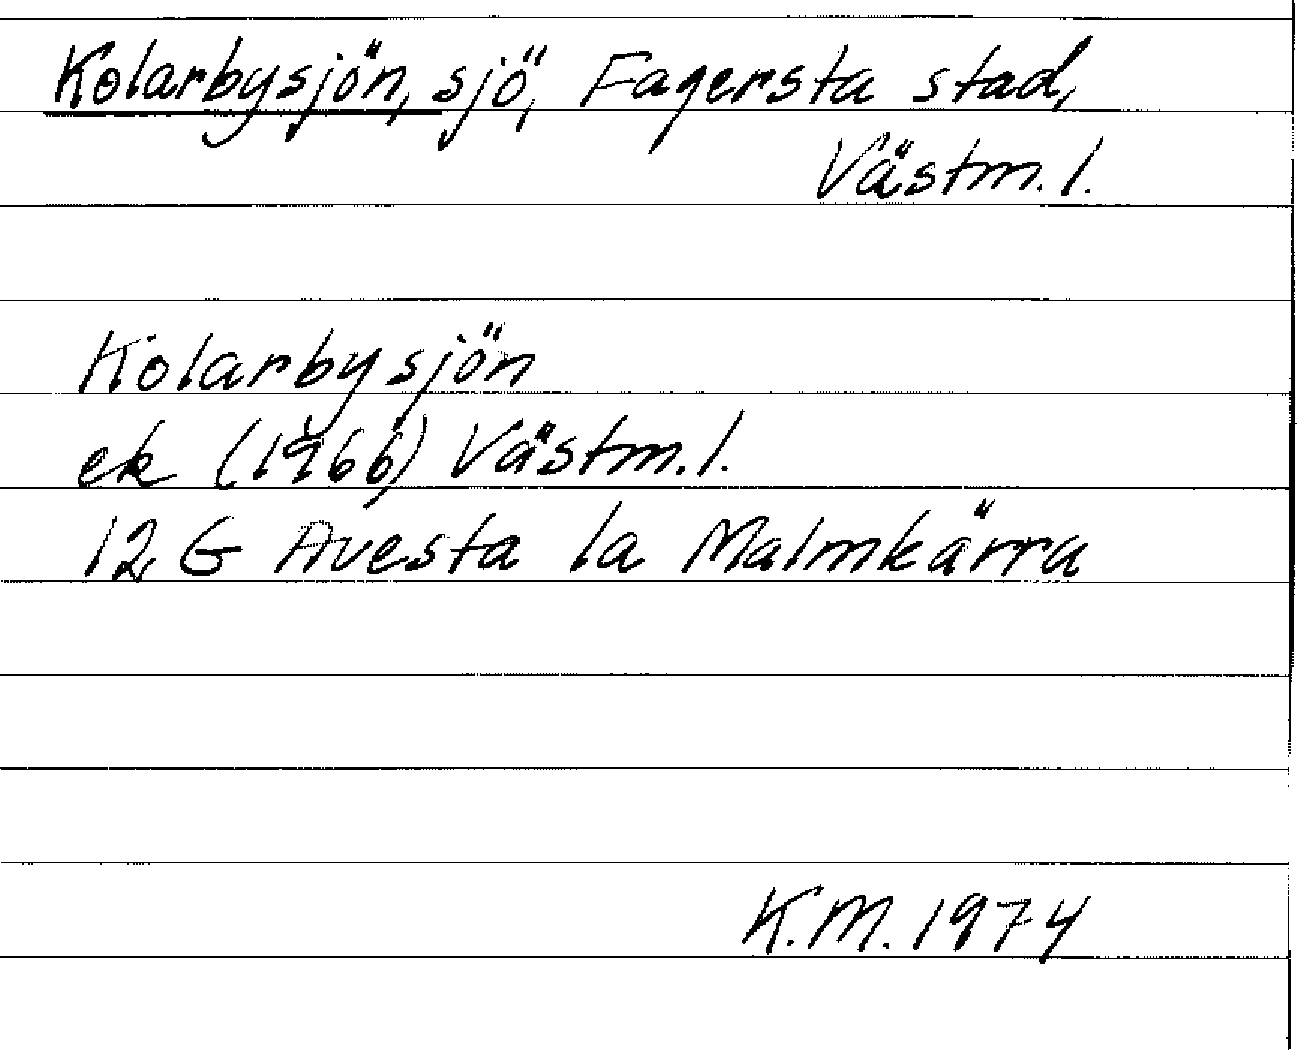 Kolarbysjön, sjö, Fagersta stad,
Västm. l.
Kolarbysjön
ek (1966) Västm. l.
12 G Avesta 1a Malmkärra
K.M. 1974